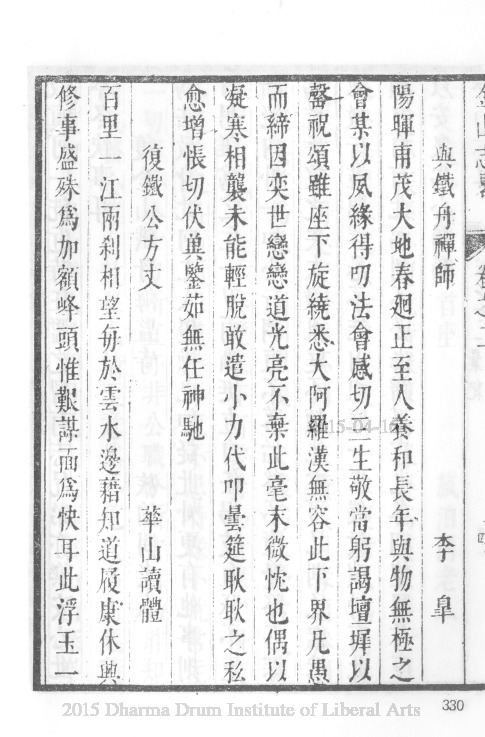 金山志畧 卷之二
與鐵舟禪師 李皐
陽暉甫茂大地春廻正至人養和長年與物無極之
會某以夙緣得叨法會感切三生敬當躬謁壇墀以
罄祝頌雖座下旋繞悉大阿羅漢無容此下界凡愚
而締因奕世戀戀道光亮不棄此毫末微忱也偶以
凝寒相襲未能輕脫敢遣小力代叩曇筵耿耿之私
愈增悵切伏兾鑒茹無任神馳
復鐵公方丈 華山讀體
百里一江兩刹相望每於雲水邊藉知道履康休興
修事盛殊爲加額峰頭惟艱謀面爲怏耳此浮玉一
330
2015-04-16
2015 Dharma Drum Institute of Liberal Arts